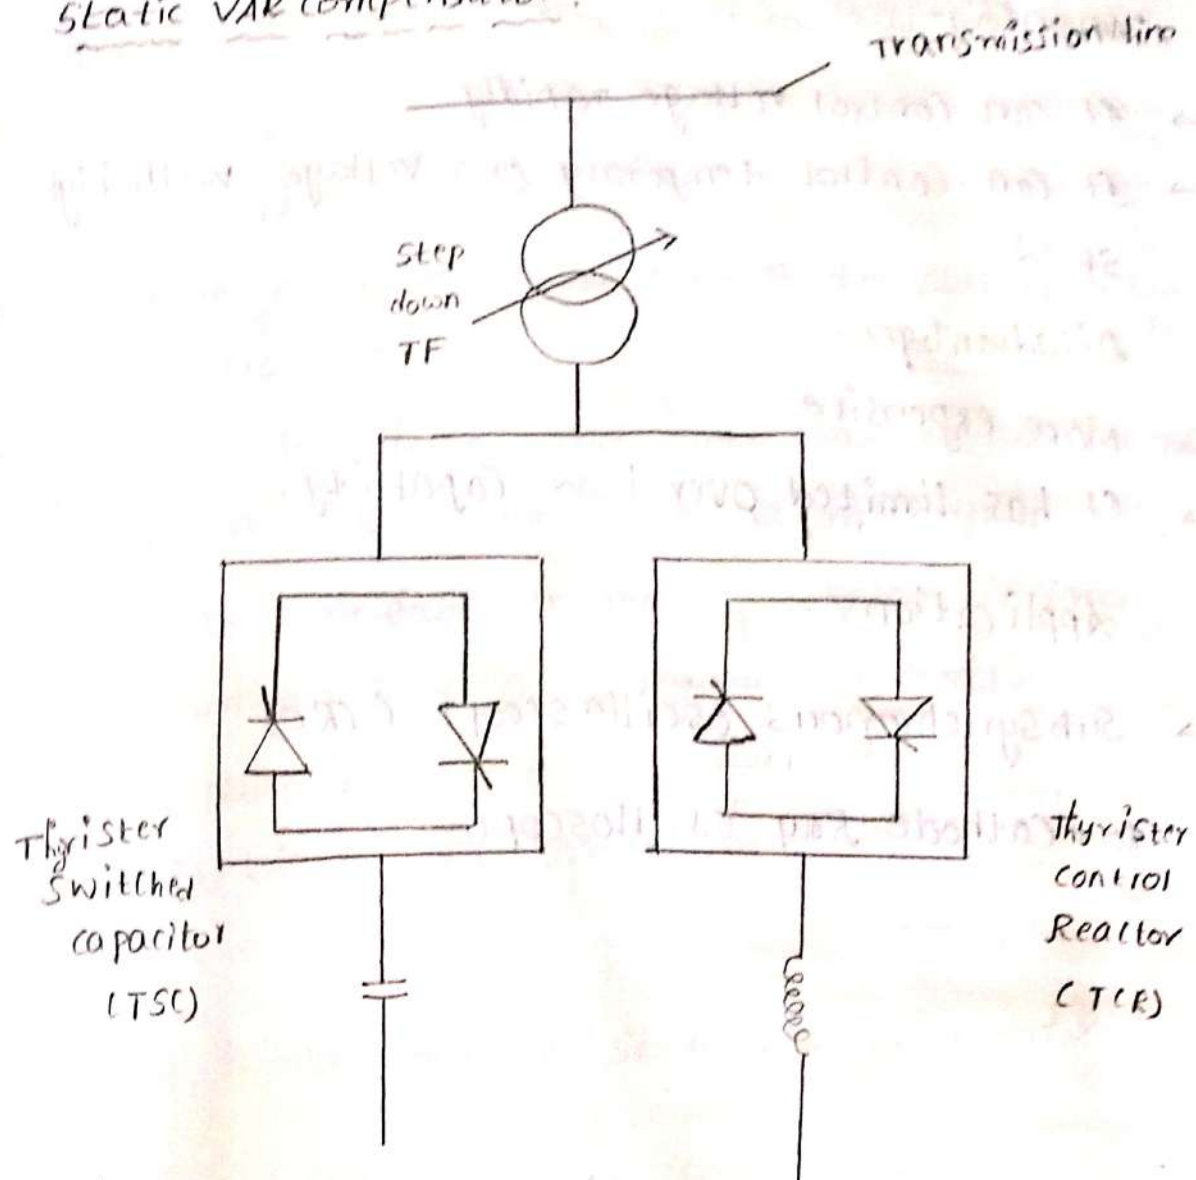 Static VAR Compensator:
Transmission line
Step
down
TF
Thyrister
Switched
capacitor
(TSC)
Thyrister
control
Reactor
(TCR)